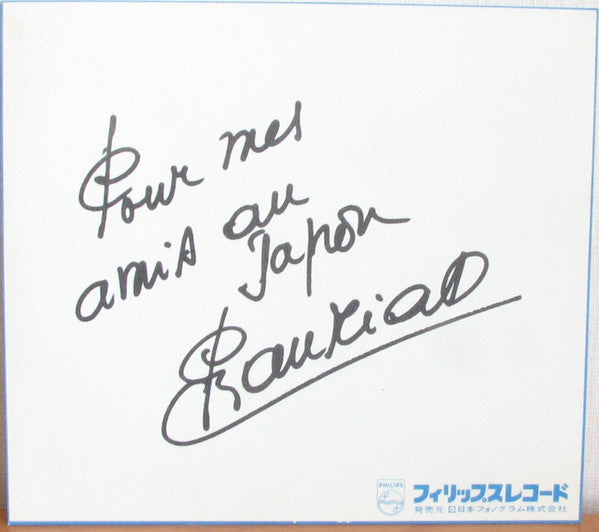 Pour mes
amis au
Japon
PHILIPS
フィリップスレコード
発売元 日本フォノグラム株式会社